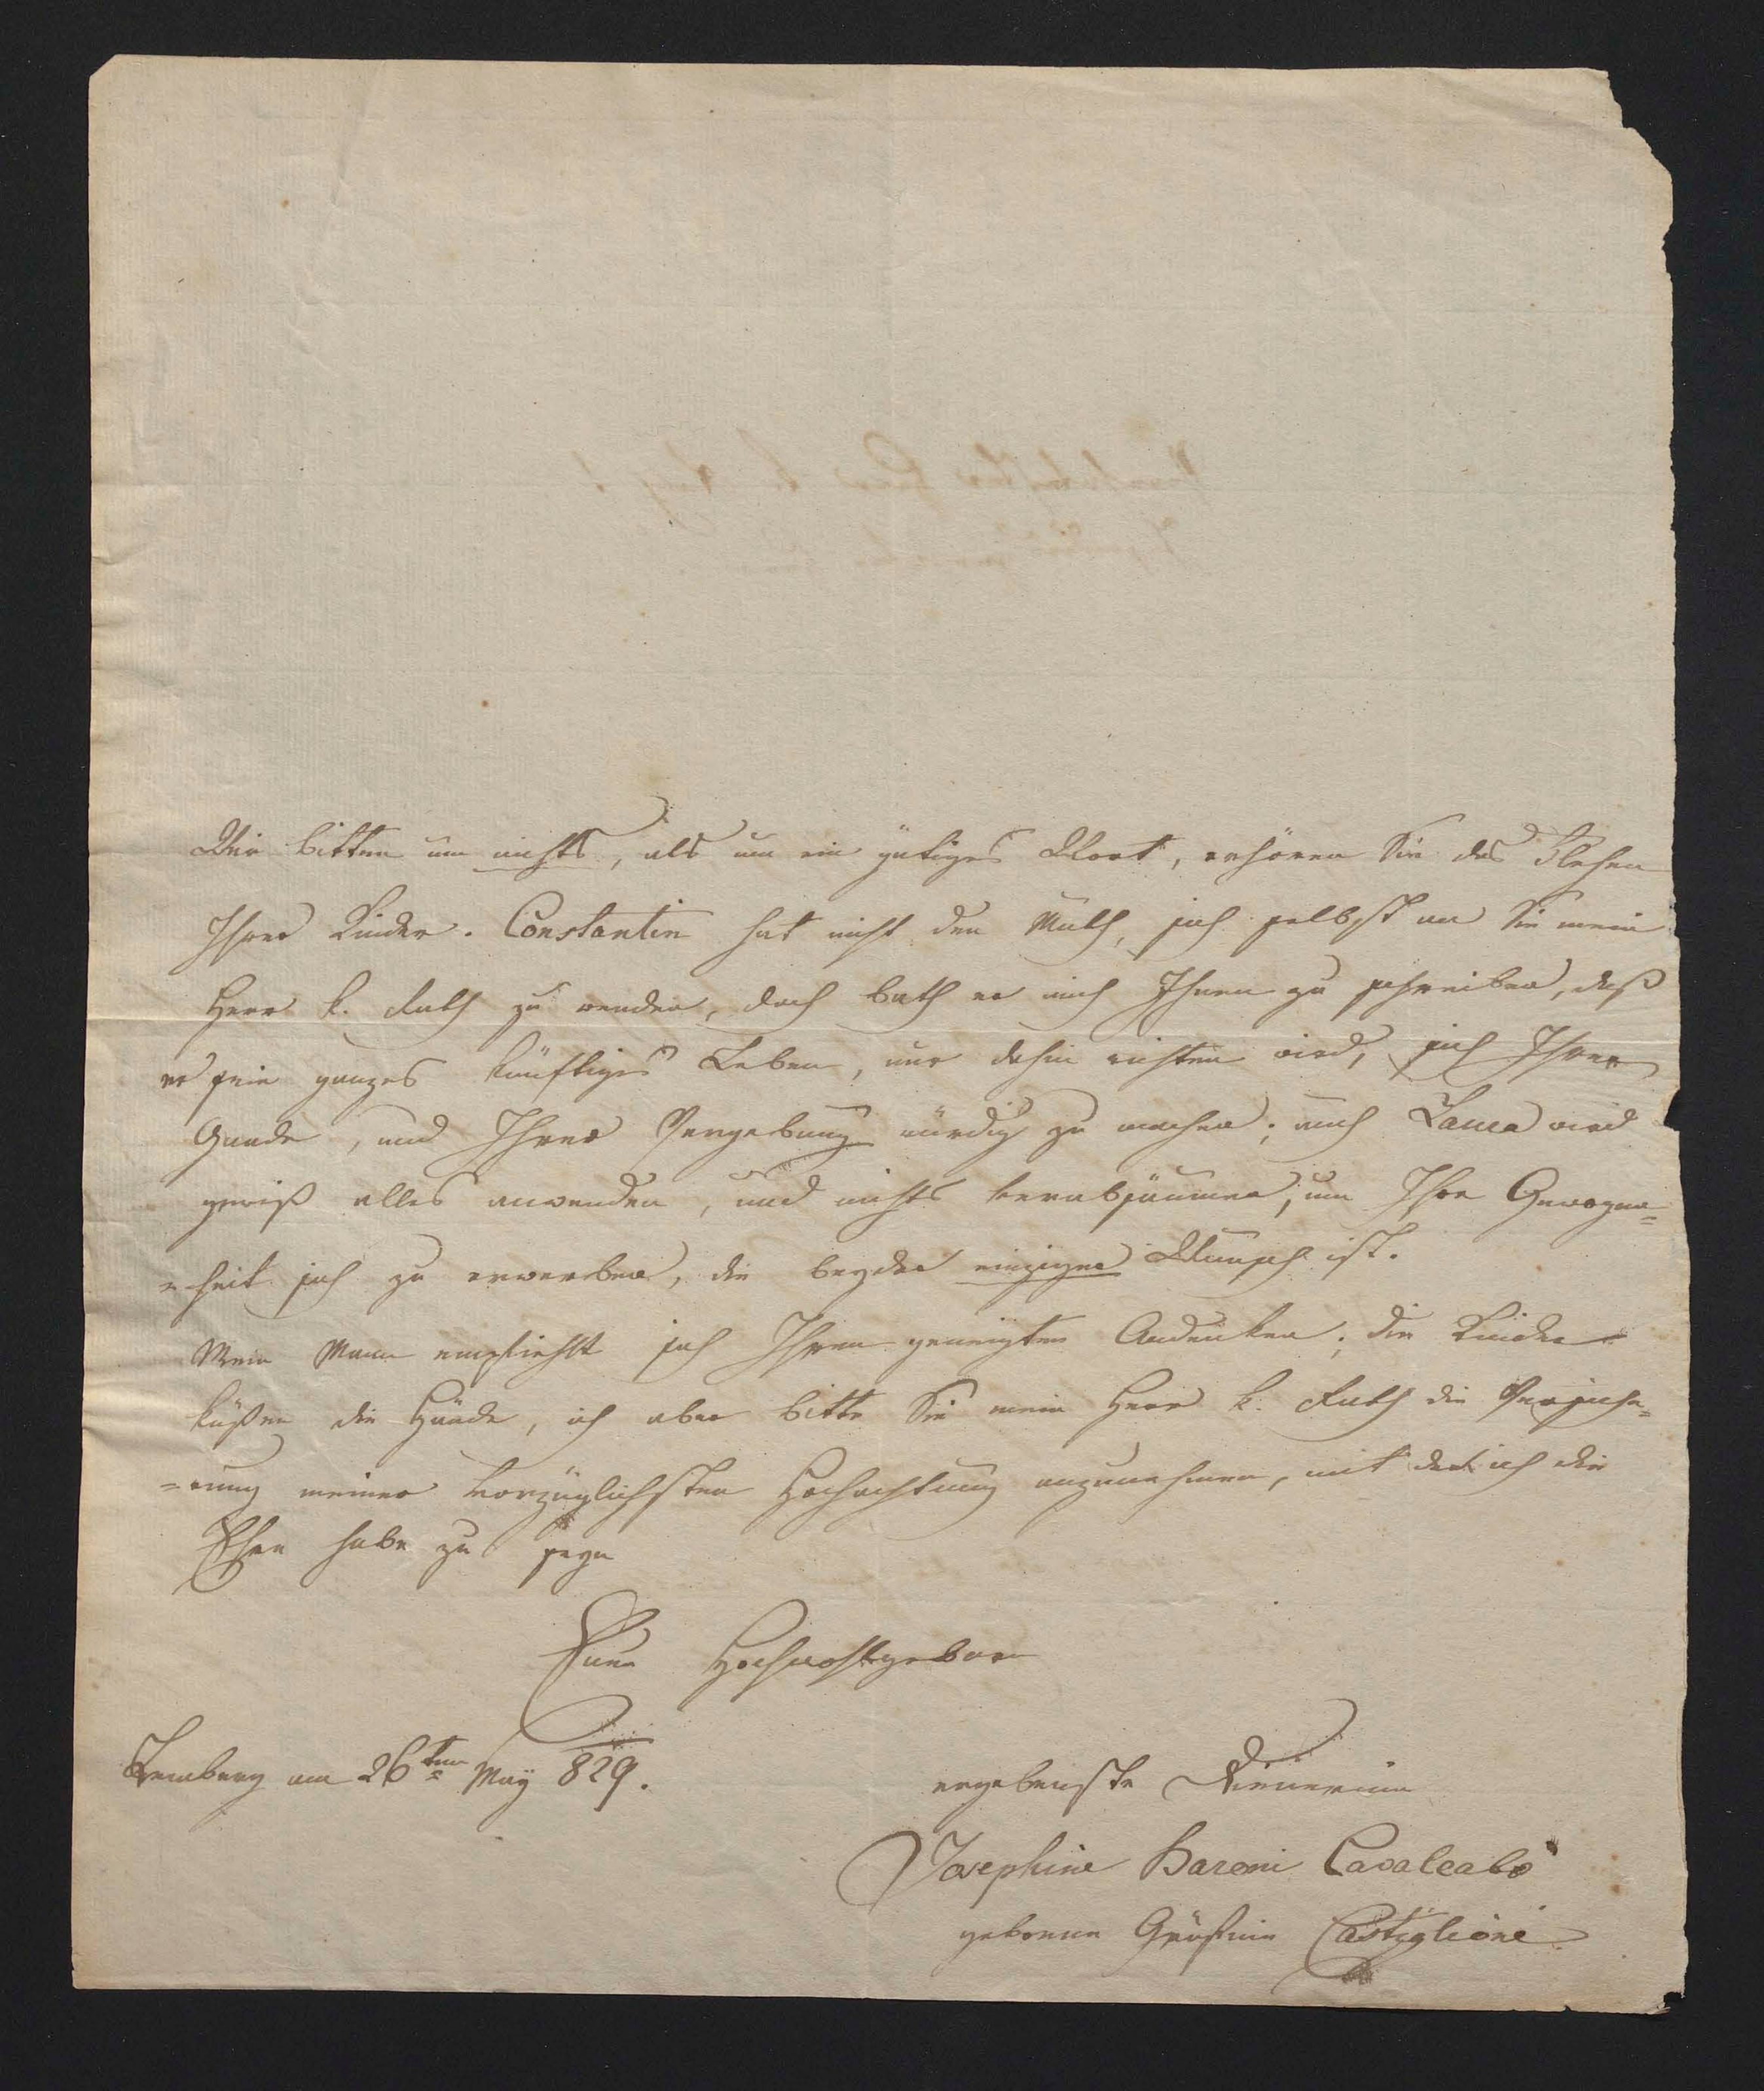 Wir bitten um nichts, als um ein gütiges Wort, erhören Sie das Flehen
Ihrer Kinder. Constantin hat nicht den Muth, sich selbst an Sie mein
Herr k. Rath zu wenden, doch bath er mich Ihnen zu schreiben, daß
er sein ganzes künftiges Leben, nur dahin richten wird, sich Ihrer
Gnade, und Ihrer Vergebung würdig zu machen; auch Laura wird
gewiß alles anwenden, und nichts verabsäumen, um Ihre Gewogen=
=heit sich zu erwerben, die beyder einziger Wunsch ist.
Mein Mann empfiehlt sich Ihrem geneigten Andenken; die Kinder
küßen die Hände, ich aber bitte Sie mein Herr k. Rath die Versiche=
=rung meiner vorzüglichsten Hochachtung anzunehmen, mit der ich die
Ehre habe zu seyn
Euer Hochwohlgeboren
Lemberg am 26ten May 829.
ergebenste Dienerinn
Josephine Baroni Cavalcabò
geborene Gräfinn Castiglione